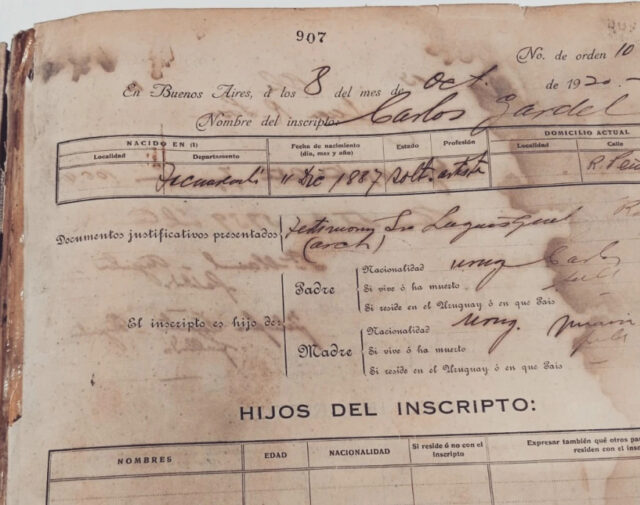 907
No. de orden 10
En Buenos Aires, a los 8 del mes de Oct. de 1920
Nombre del inscripto: Carlos Gardel
NACIDO EN (1)
Localidad Departamento
Fecha de nacimiento
(día, mes y año)
Estado
Profesión
DOMICILIO ACTUAL
Calle
Tacuarembó 11 Dic 1887 Solt. artista
Documentos justificativos presentados
El inscripto es hijo de:
Padre
Nacionalidad urug Carlos
Si vive ó ha muerto
Si reside en el Uruguay ó en que País
Madre
Nacionalidad urug. María
Si vive ó ha muerto
Si reside en el Uruguay ó en que País
HIJOS DEL INSCRIPTO:
NOMBRES
EDAD
NACIONALIDAD
Si reside ó no con el
inscripto
Expresar también qué otros
residen con el